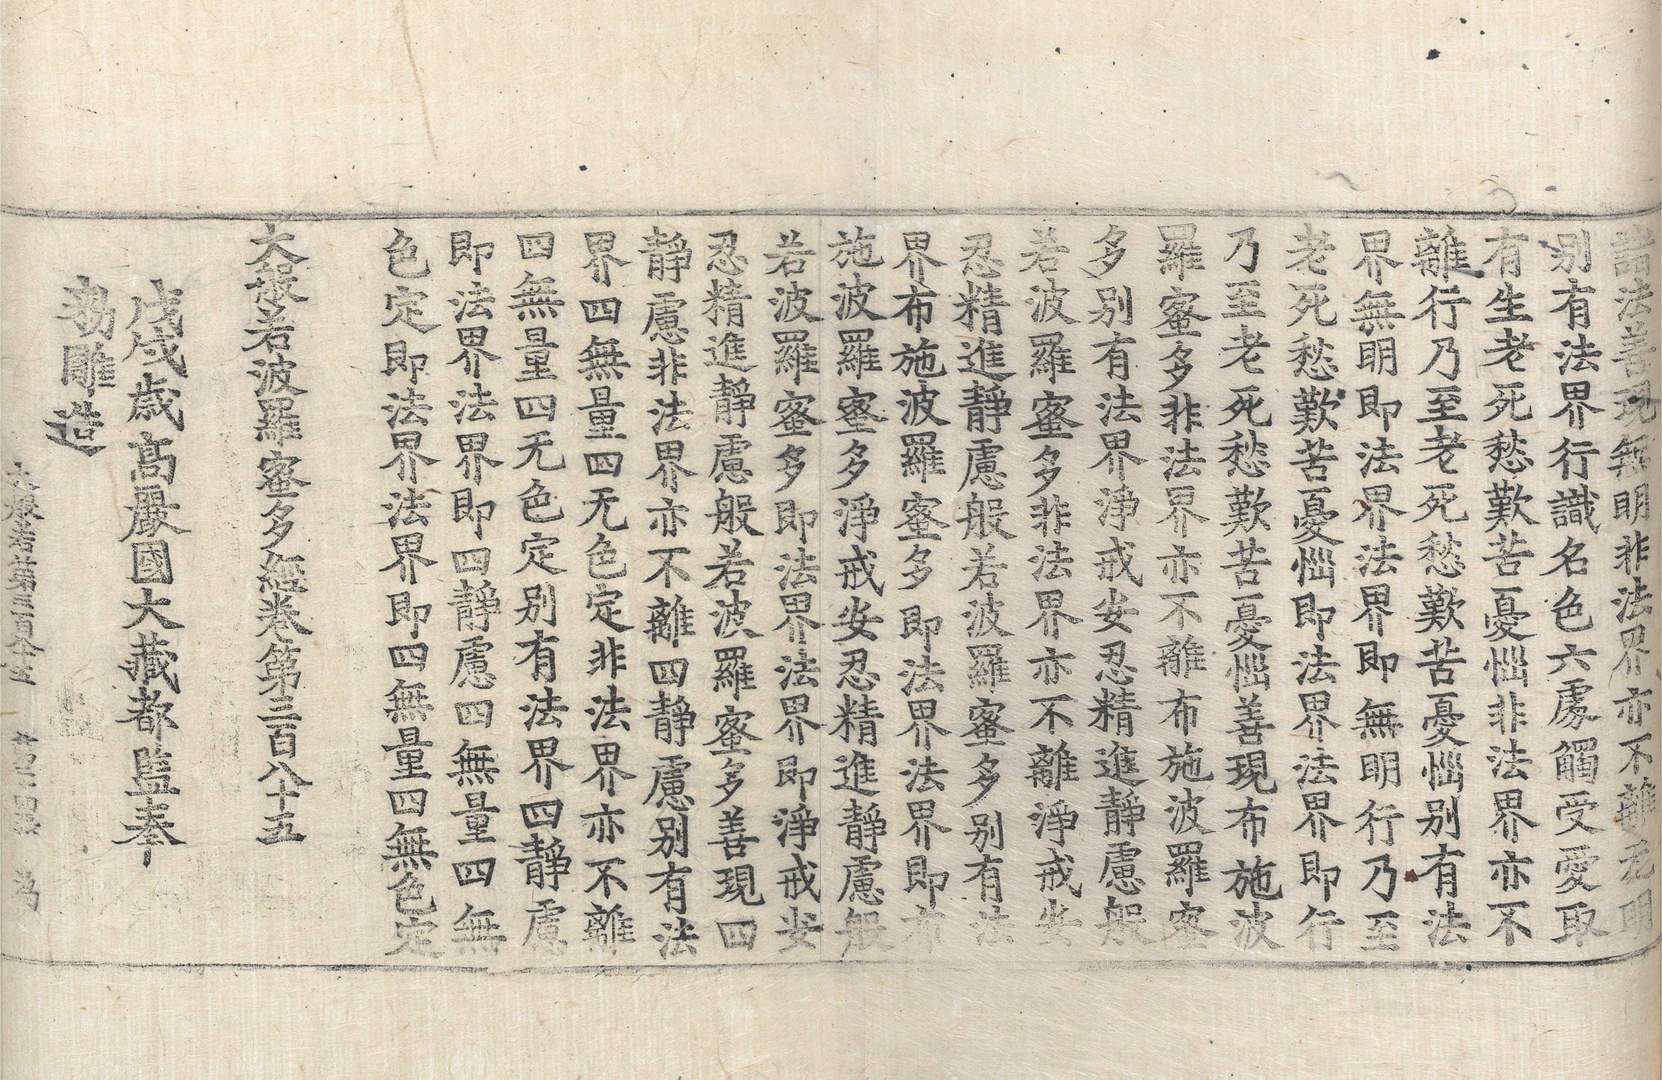 諸法善現無明非法界亦不離无明
别有法界行識名色六處觸受愛取
有生老死愁歎苦憂惱非法界亦不
離行乃至老死愁歎苦憂惱别有法
界無明即法界法界即無明行乃至
老死愁歎苦憂惱即法界法界即行
乃至老死愁歎苦憂惱善現布施波
羅蜜多非法界亦不離布施波羅蜜
多别有法界淨戒安忍精進靜慮般
若波羅蜜多非法界亦不離淨戒安
忍精進靜慮般若波羅蜜多别有法
界布施波羅蜜多即法界法界即布
施波羅蜜多淨戒安忍精進靜慮般
若波羅蜜多即法界法界即淨戒安
忍精進靜慮般若波羅蜜多善現四
靜慮非法界亦不離四靜慮别有法
界四無量四无色定非法界亦不離
四無量四无色定别有法界四靜慮
即法界法界即四靜慮四無量四無
色定即法界法界即四無量四無色定
大般若波羅蜜多經卷第三百八十五
戊戌歲高麗國大藏都監奉
勑雕造
大般若第三百八十五 為